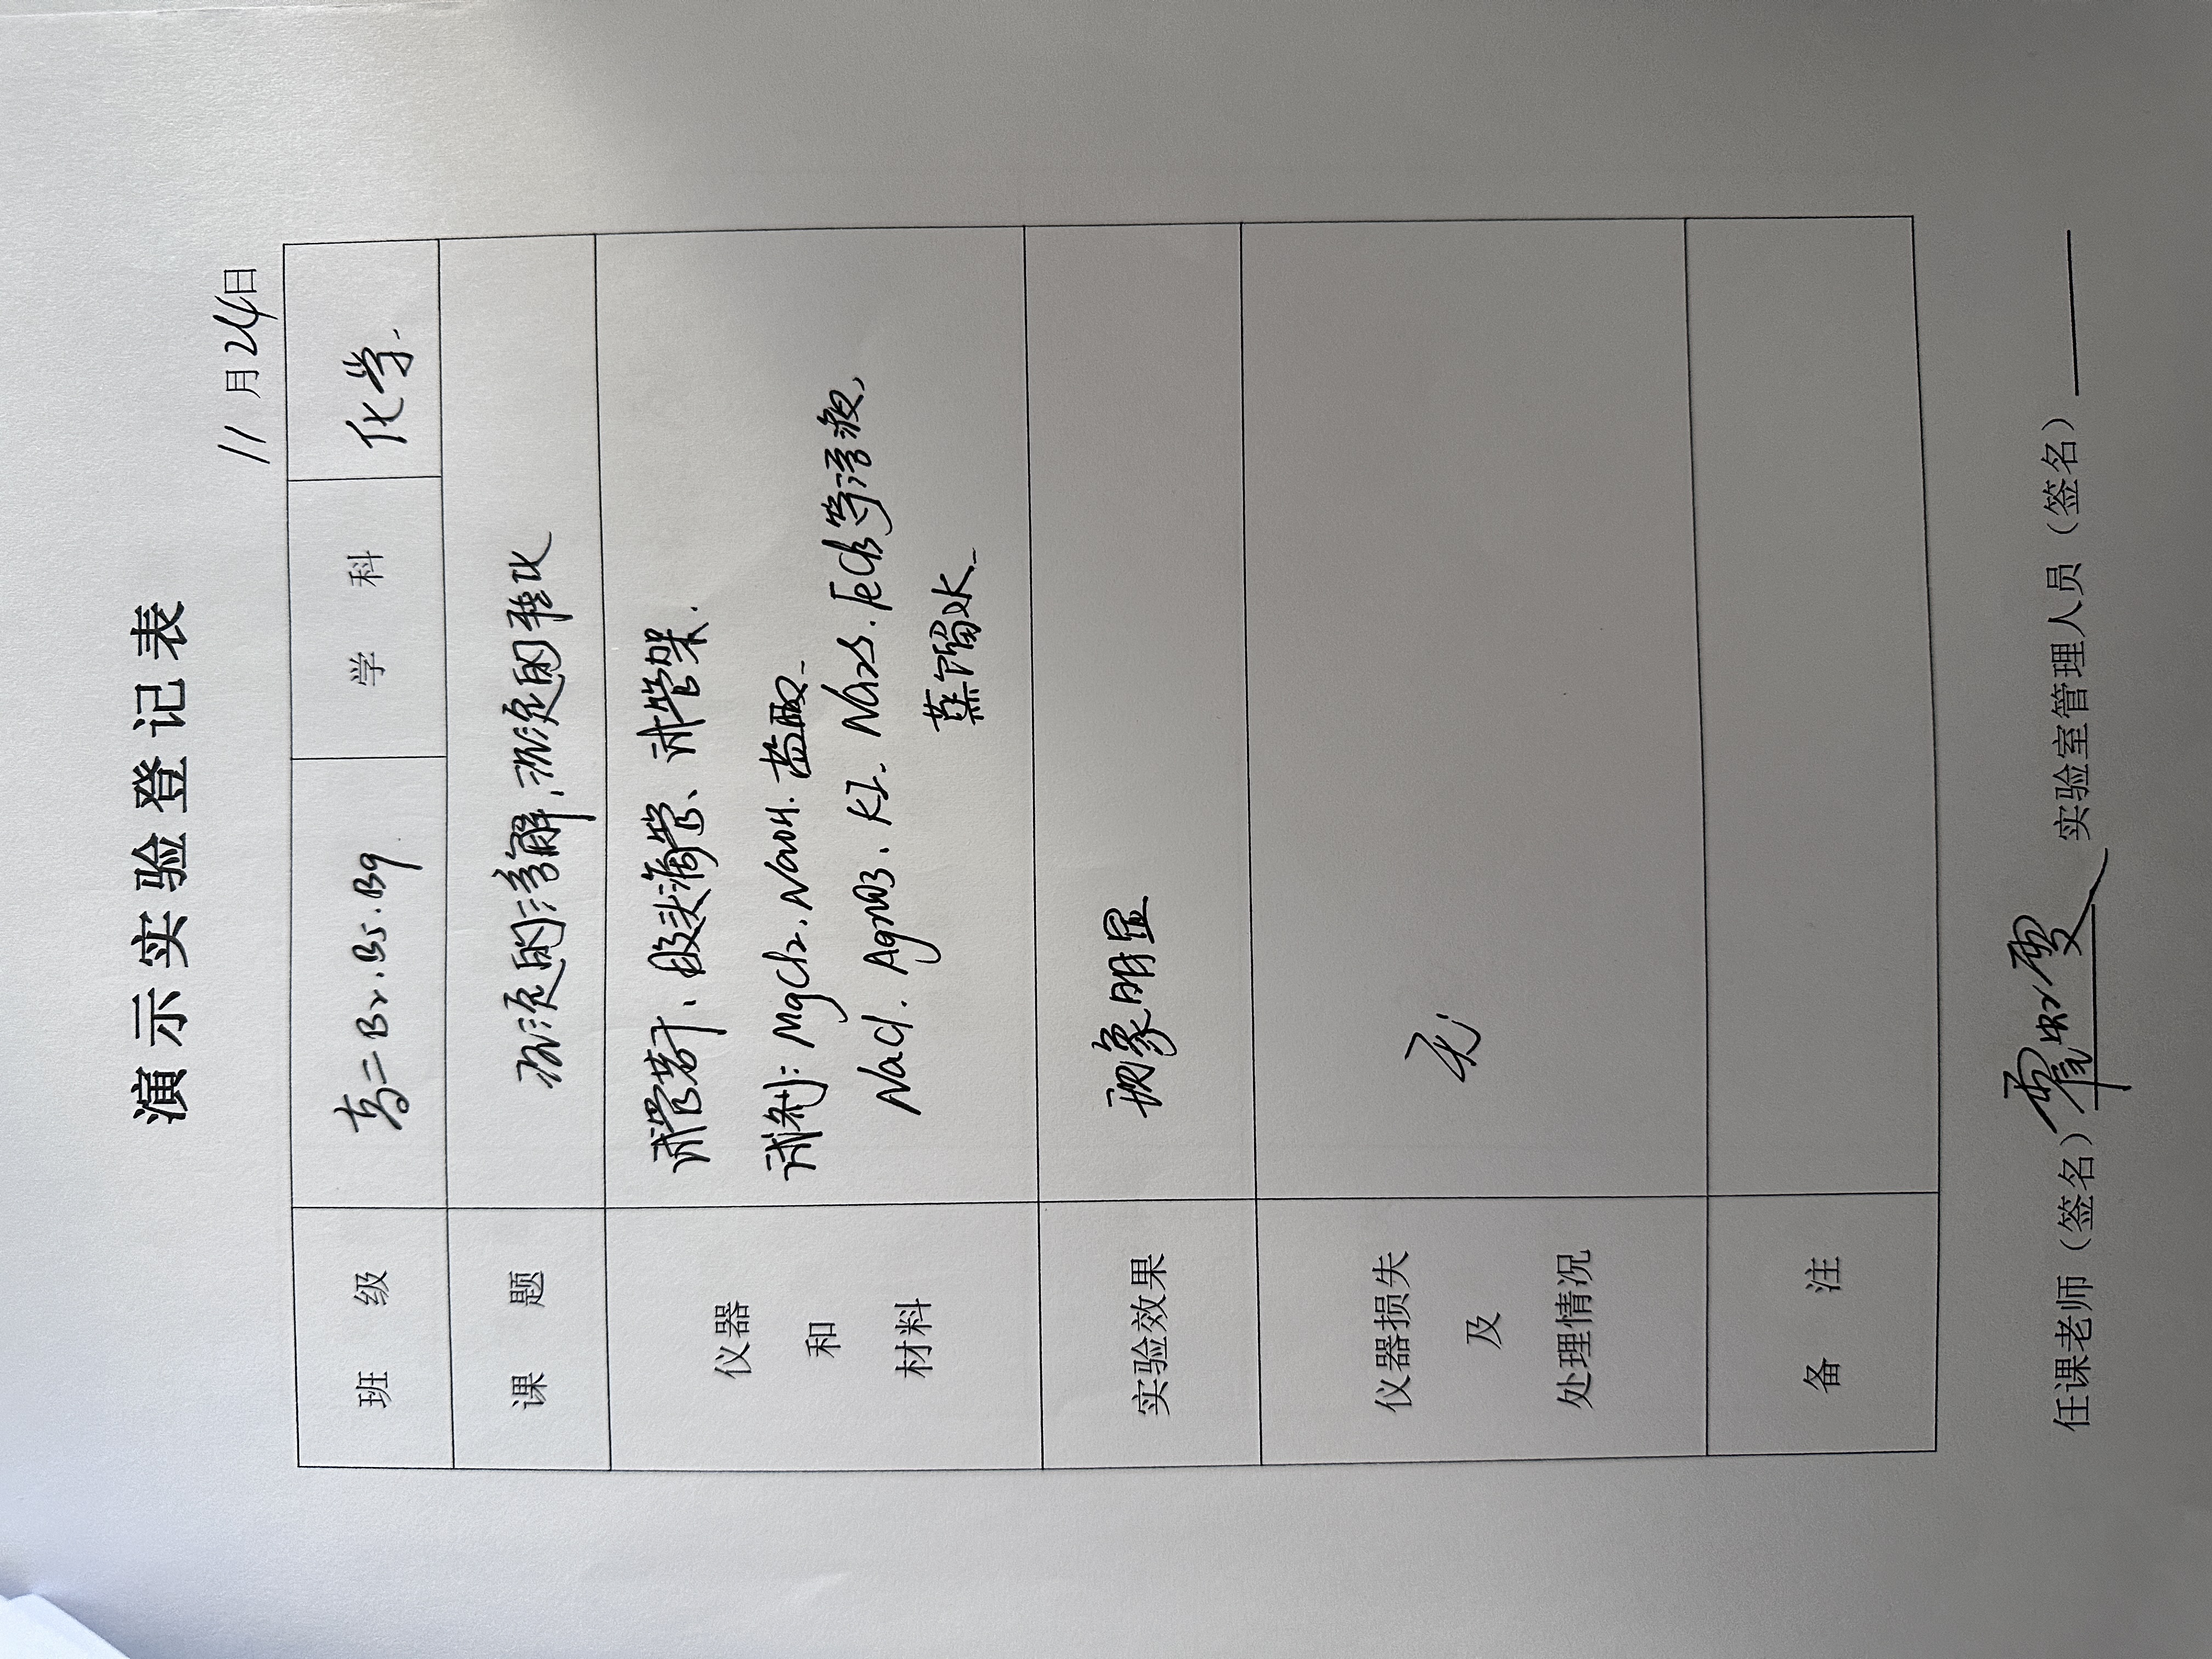 演示实验登记表
11月24日
班级 高二B2.B5.B9 学科 化学.
课题 沉淀的溶解,沉淀的转化
仪器和材料
试管若干、胶头滴管、试管架.
试剂: MgCl2. NaOH. 盐酸.
NaCl. AgNO3. KI. Na2S. FeCl3等溶液,
蒸馏水.
实验效果 现象明显
仪器损失及处理情况 无
备注
任课老师（签名） 实验室管理人员（签名）